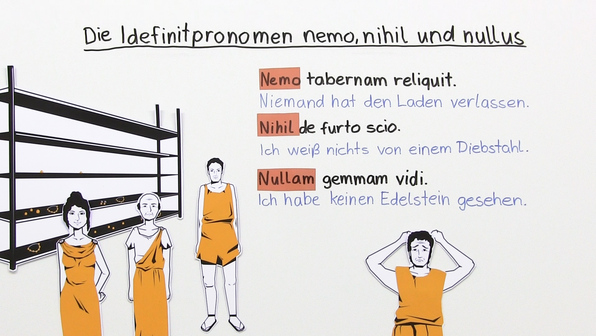 Die Idefinitpronomen nemo, nihil und nullus
Nemo tabernam reliquit.
Niemand hat den Laden verlassen.
Nihil de furto scio.
Ich weiß nichts von einem Diebstahl.
Nullam gemmam vidi.
Ich habe keinen Edelstein gesehen.